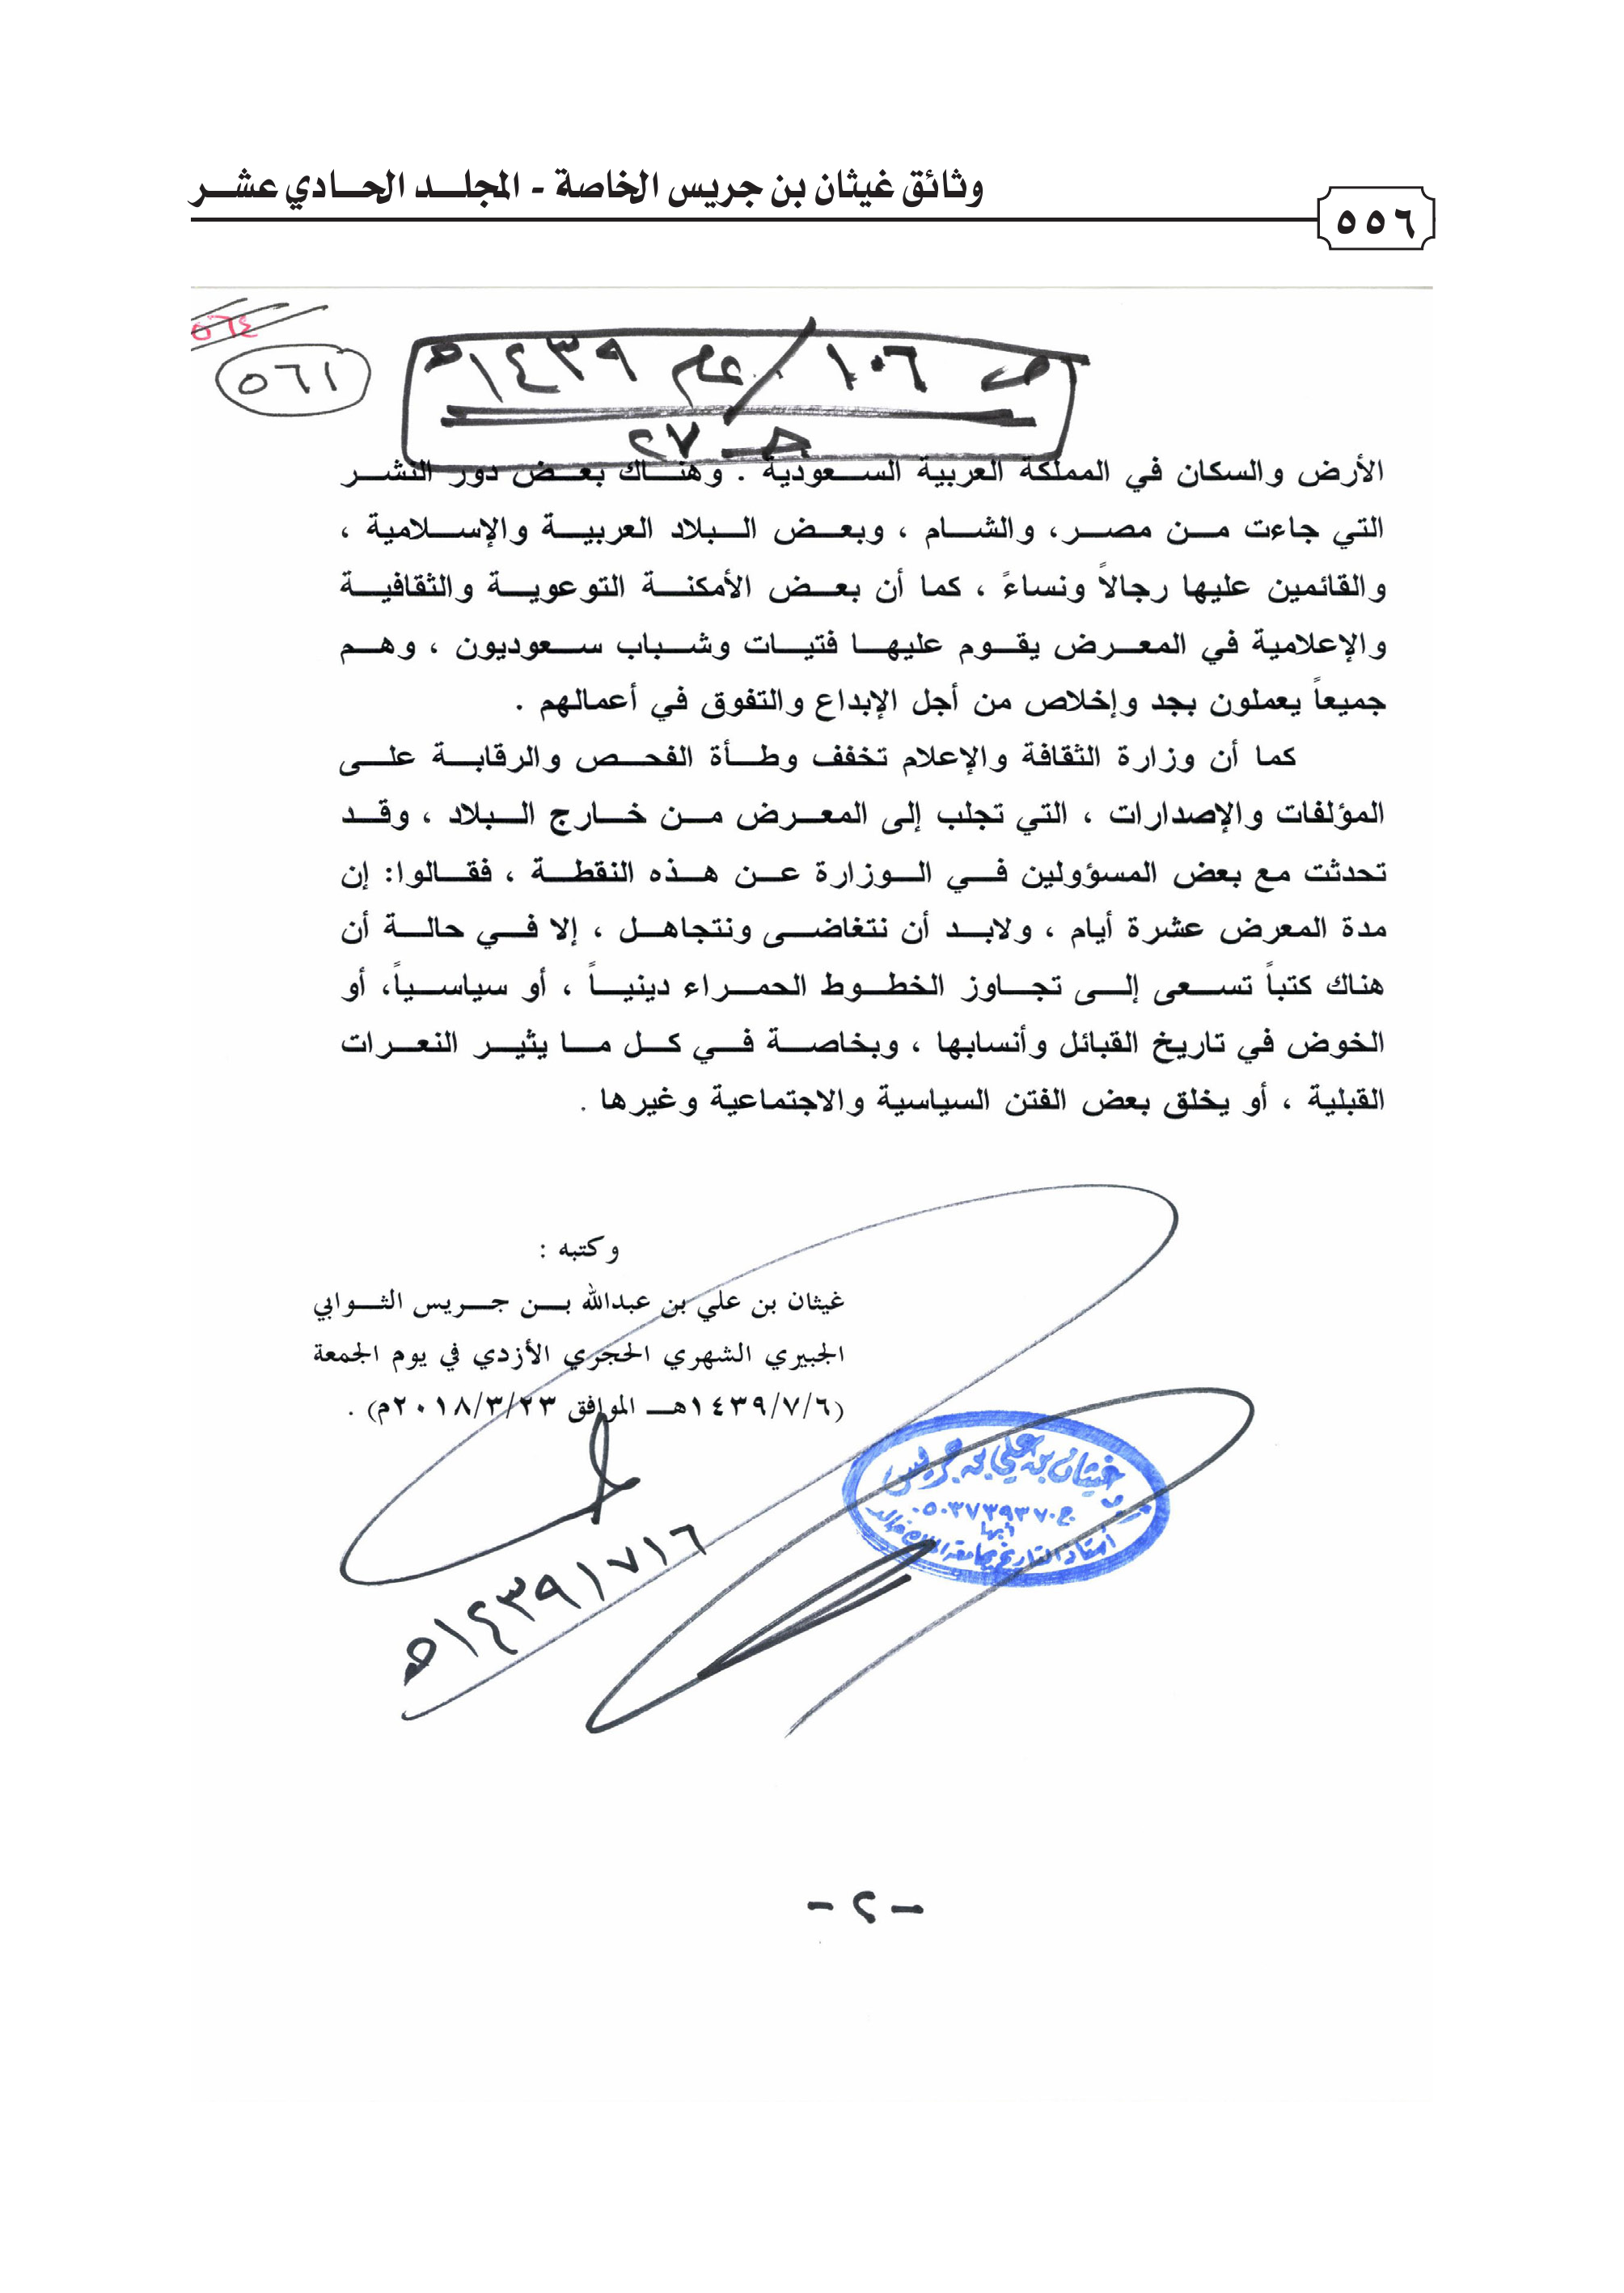 وثائق غيثان بن جريس الخاصة - المجلد الحادي عشر
٥٥٦
٥٦٤
٥٦١
ص ١٠٦ / عام ١٤٣٩هـ
جـ ٢٧
الأرض والسكان في المملكة العربية السعودية . وهناك بعض دور النشر
التي جاءت من مصر، والشام ، وبعض البلاد العربية والإسلامية ،
والقائمين عليها رجالاً ونساءً ، كما أن بعض الأمكنة التوعوية والثقافية
والإعلامية في المعرض يقوم عليها فتيات وشباب سعوديون ، وهم
جميعاً يعملون بجد وإخلاص من أجل الإبداع والتفوق في أعمالهم .
كما أن وزارة الثقافة والإعلام تخفف وطأة الفحص والرقابة على
المؤلفات والإصدارات ، التي تجلب إلى المعرض من خارج البلاد ، وقد
تحدثت مع بعض المسؤولين في الوزارة عن هذه النقطة ، فقالوا: إن
مدة المعرض عشرة أيام ، ولابد أن نتغاضى ونتجاهل ، إلا في حالة أن
هناك كتباً تسعى إلى تجاوز الخطوط الحمراء دينياً ، أو سياسياً، أو
الخوض في تاريخ القبائل وأنسابها ، وبخاصة في كل ما يثير النعرات
القبلية ، أو يخلق بعض الفتن السياسية والاجتماعية وغيرها .
وكتبه :
غيثان بن علي بن عبدالله بن جريس الثوابي
الجبيري الشهري الحجري الأزدي في يوم الجمعة
(١٤٣٩/٧/٦هـ الموافق ٢٠١٨/٣/٢٣م) .
غيثان بن علي بن جريس
ج ٠٥٠٣٧٣٩٣٧٠
أبها
أستاذ التاريخ بجامعة الملك خالد
١٤٣٩/٧/٦هـ
- ٢ -